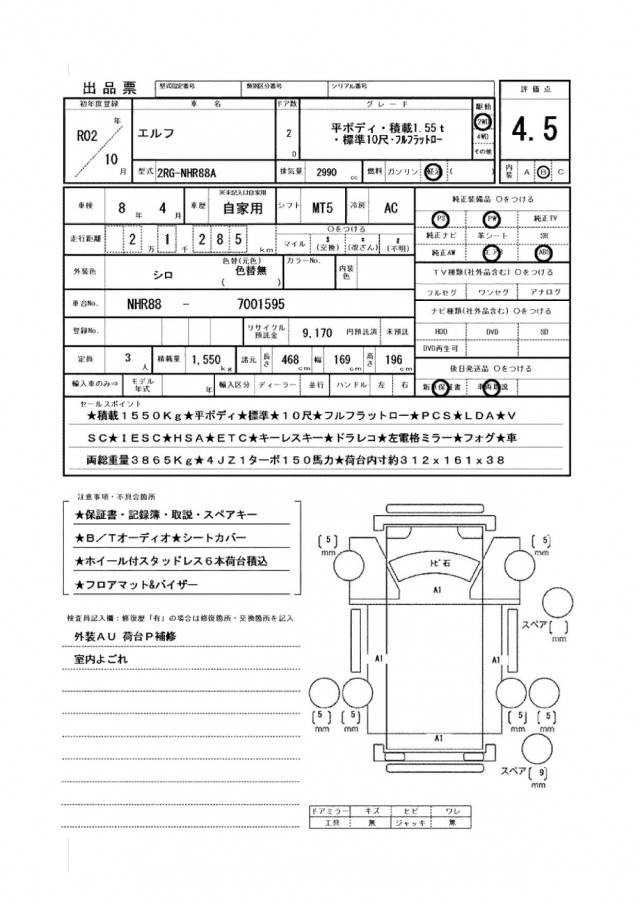 出品票 型式指定番号 類別区分番号 シリアル番号
初年度登録 車名 ドア数 グレード 駆動 評価点
R02 年 10 月
エルフ
2 D
平ボディ・積載1.55t
・標準10尺・フルフラットロー
2WD
4WD
その他
4.5
型式 2RG-NHR88A 排気量 2990 cc 燃料 ガソリン 軽油 ( ) 内装 A B C
車検 8年 4月 車歴 ※未記入は自家用 自家用 シフト MT5 冷房 AC
純正装備品 〇をつける
走行距離 2万1千285km マイル $(交換) *(改ざん) #(不明) 〇をつける
PS PW 純正TV
純正ナビ 革シート SR
純正AW エアB ABS
外装色 シロ 色替(元色) 色替無 ( ) カラーNo. 内装色
TV種類(社外品含む) 〇をつける
フルセグ ワンセグ アナログ
車台No. NHR88 - 7001595
ナビ種類(社外品含む) 〇をつける
登録No. リサイクル預託金 9,170 円預託済 未預託
HDD DVD SD
DVD再生可
定員 3人 積載量 1,550kg 諸元 長さ 468cm 幅 169cm 高さ 196cm
後日発送品 〇をつける
輸入車のみ⇒ モデル年式 年 輸入区分 ディーラー 並行 ハンドル 左 右
新車保証書 車両取説
セールスポイント
★積載1550Kg★平ボディ★標準★10尺★フルフラットロー★PCS★LDA★V
SC★IESC★HSA★ETC★キーレスキー★ドラレコ★左電格ミラー★フォグ★車
両総重量3865Kg★4JZ1ターボ150馬力★荷台内寸約312x161x38
注意事項・不具合箇所
★保証書・記録簿・取説・スペアキー
★B/Tオーディオ★シートカバー
★ホイール付スタッドレス6本荷台積込
★フロアマット&バイザー
検査員記入欄：修復歴「有」の場合は修復箇所・交換箇所を記入
外装AU 荷台P補修
室内よごれ
(5) mm
(5) mm
トビ石
A1
スペア( ) mm
A1
A1
(5) mm
(5) mm
(5) mm
(5) mm
A1
スペア(9) mm
ドアミラー キズ ヒビ ワレ
工具 無 ジャッキ 無